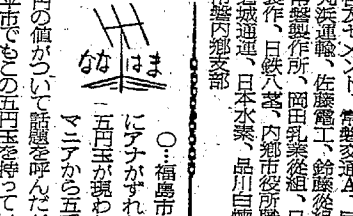 セメント、常磐交通A
浜運輸、佐藤電工、鈴藤從
磐製作所、岡田乳業從組、
作、日鉄八茎、内郷市役所
岩城通運、日本水素、品川白煉
磐内郷支部
ななはま
○…福島市
にアナがずれ
五円玉が現わ
マニアから五
円の値がついて話題を呼んだ
平市でもこの五円玉を持って